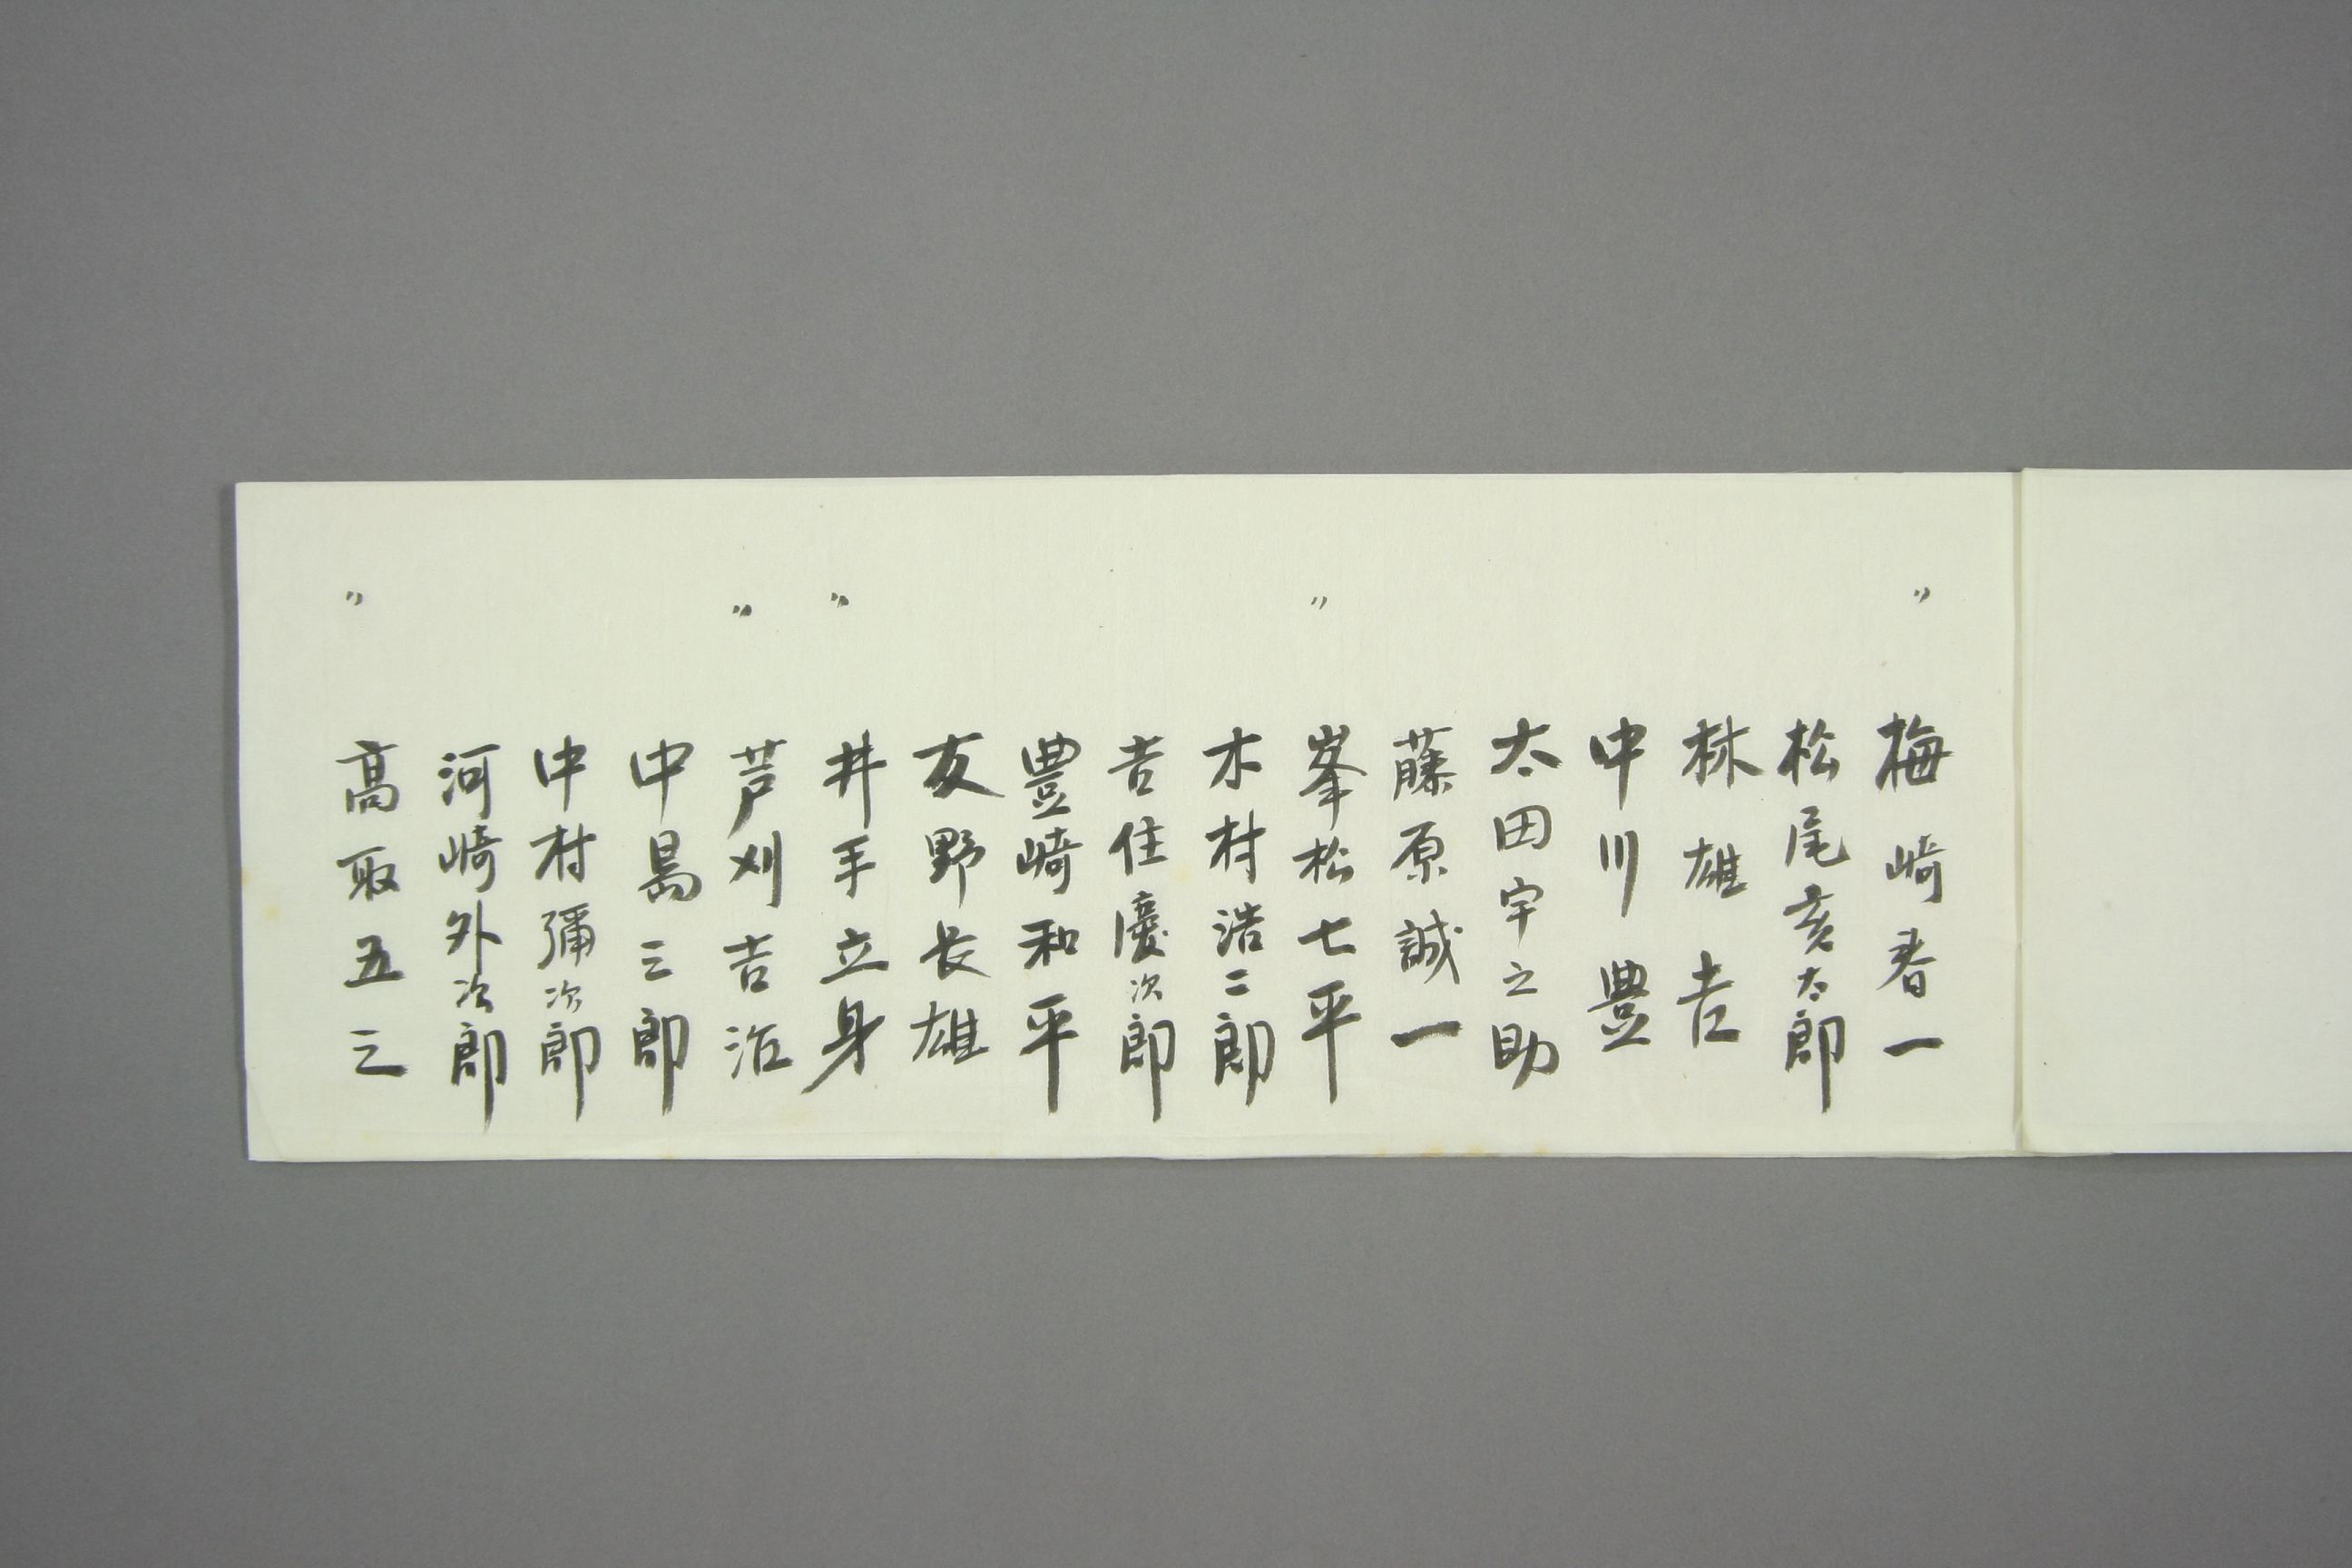 〃 梅崎春一
松尾亥太郎
林雄吉
中川豊
太田宇之助
藤原誠一
〃 峯松七平
木村浩二郎
吉住慶次郎
豊崎和平
友野長雄
〃 井手立身
〃 芦刈吉治
中島三郎
中村彌次郎
河崎外次郎
〃 高取五三